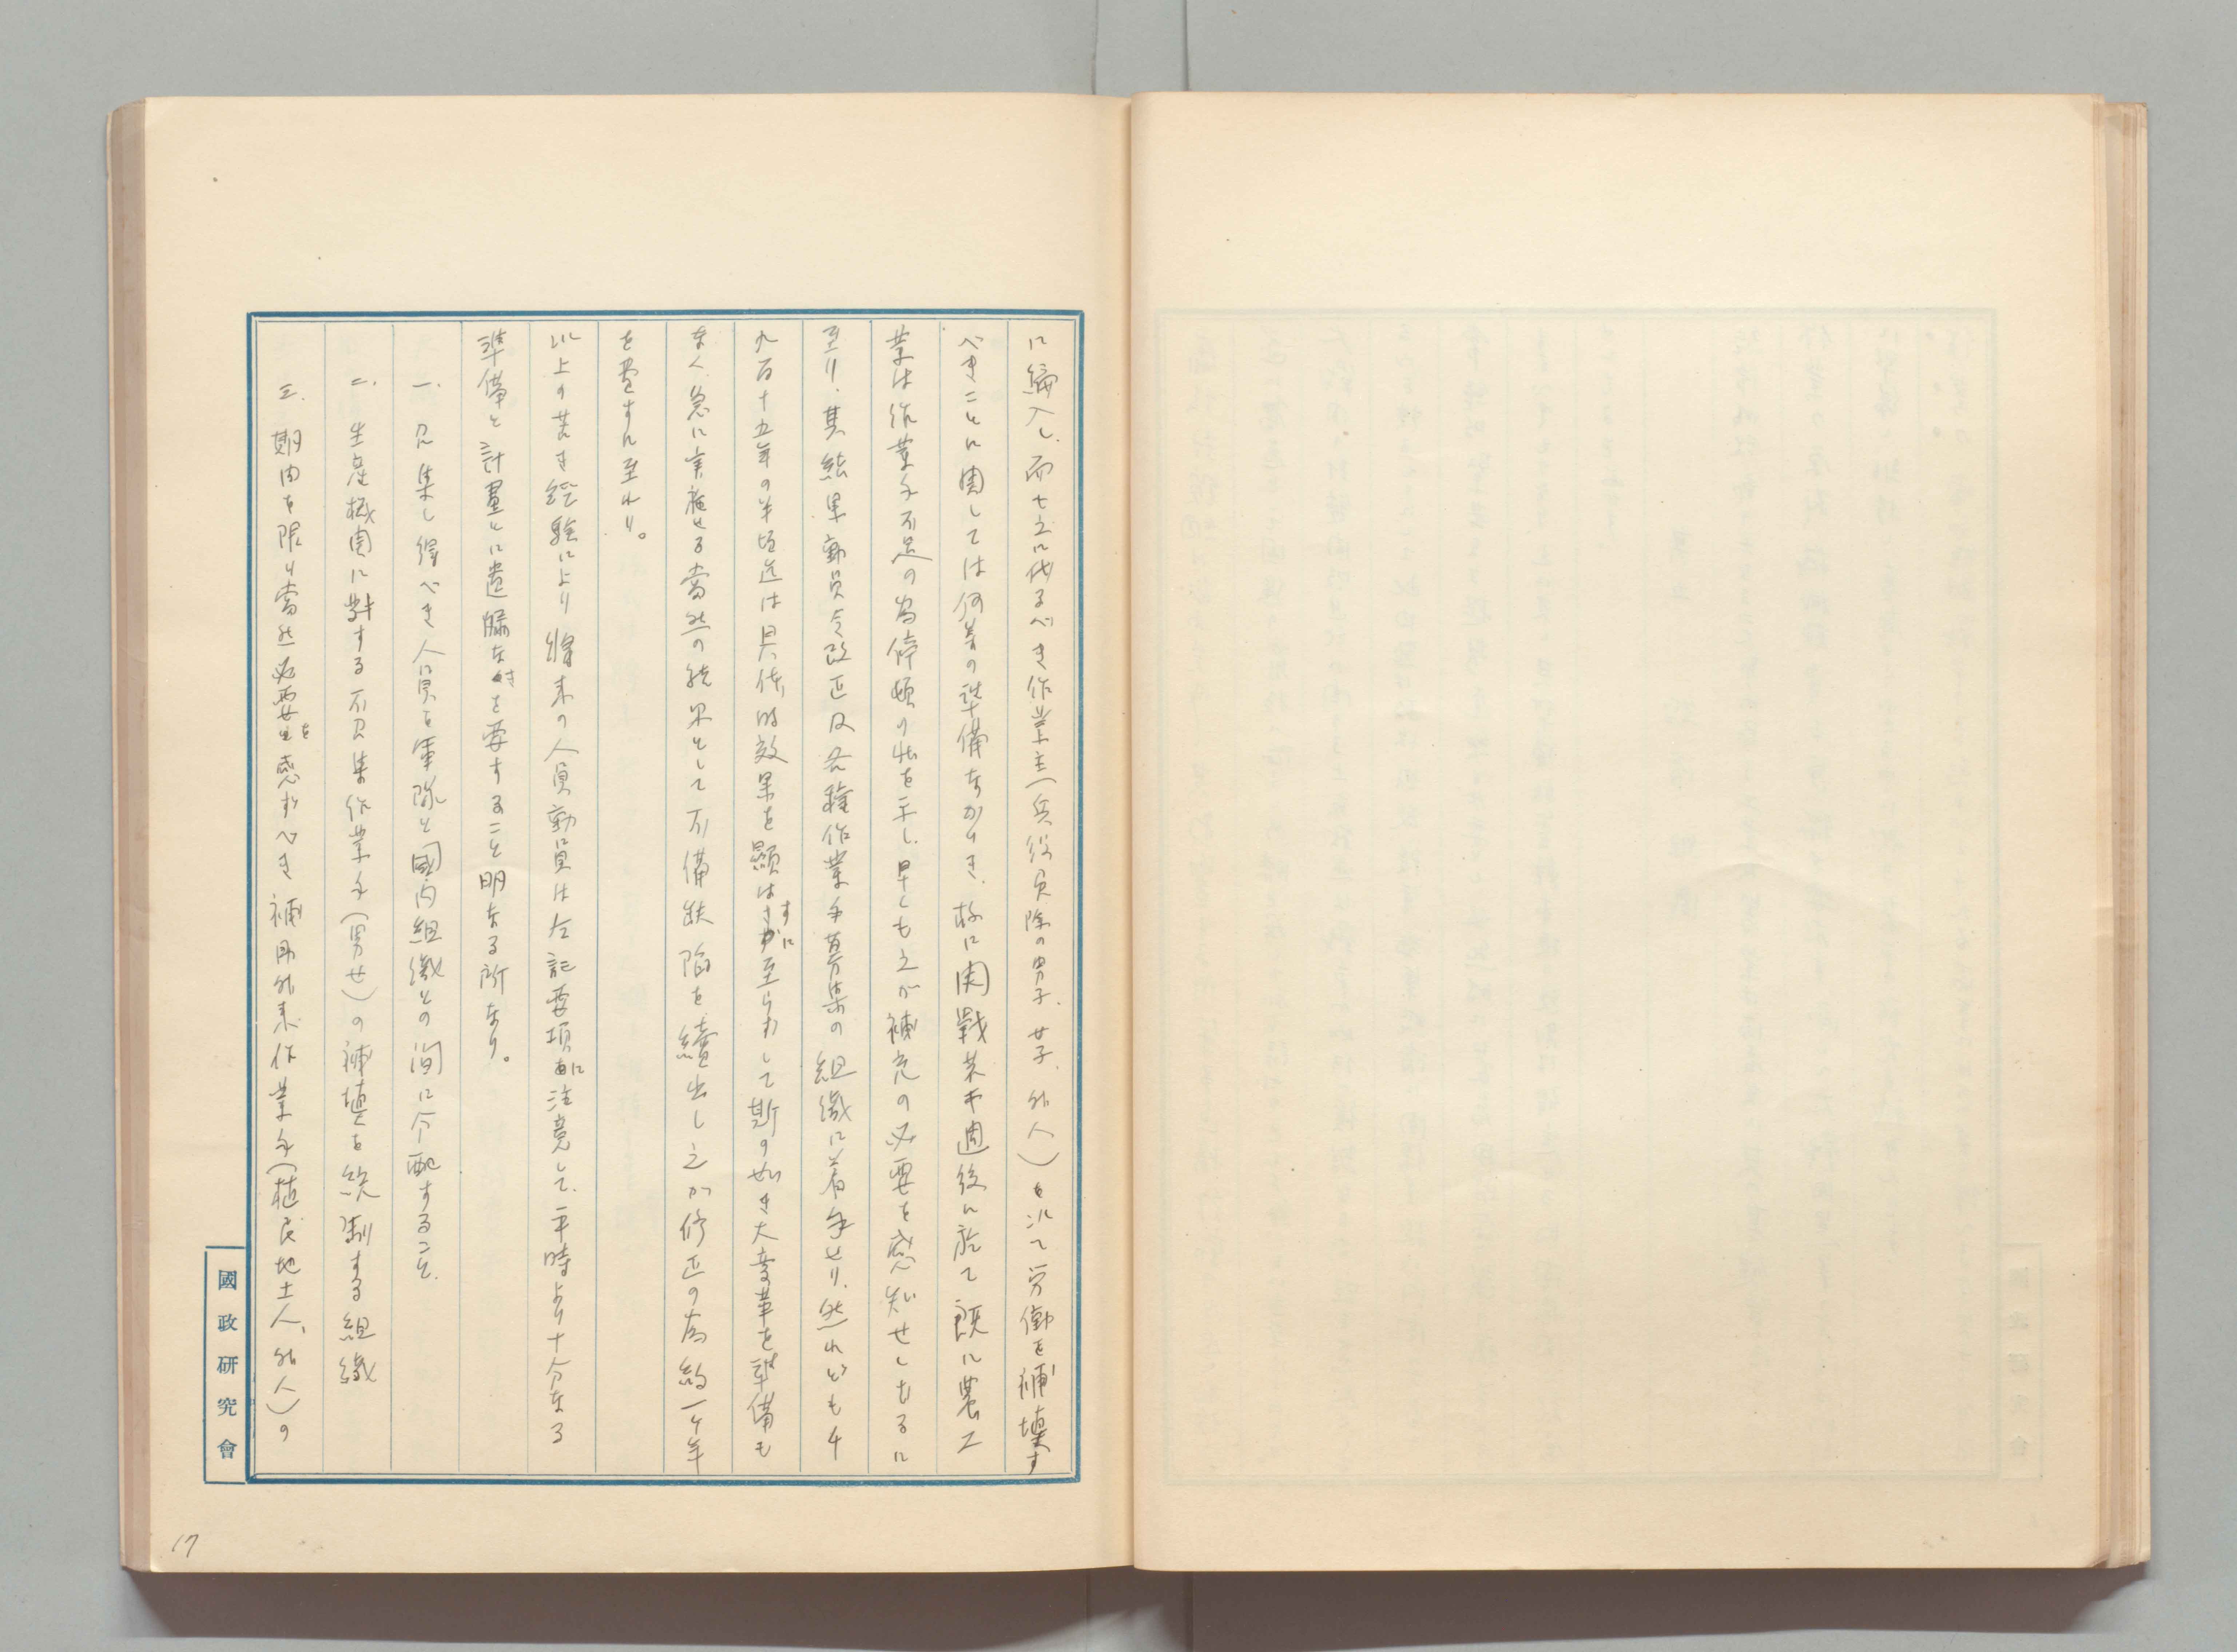 に編入し、而も之に代るべき作業主（兵役免除の男子、女子、外人）を以て労働を補填す
べきことに関しては何等の準備なかりき、故に開戦第十週後に於て既に農工
業は作業手不足の為停頓の状を示し、早くも之が補充の必要を感知せしむるに
至り、其結果動員令改正及各種作業手募集の組織に着手せり、然れども千
九百十五年の半頃迄は具体的效果を顕はすに至らずして斯の如き大変革を準備も
なく急に実施せる當然の結果として不備缺陥を續出し之が修正の為約一ケ年
を費すに至れり。
以上の苦き経験により将来の人員動員は左記要項に注意して、平時より十分なる
準備と計畫とに遺漏なきを要すること明なる所なり。
一、召集し得べき人員を軍隊と國内組織との間に分配すること、
二、生産機関に対する不召集作業手（男女）の補填を統制する組織
三、期間を限り當然必要を感ずべき補助外来作業手（植民地土人、外人）の
國政研究會
17